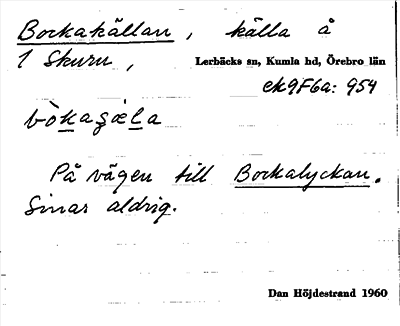 Bockakällan, källa å
1 Skuru, Lerbäcks sn, Kumla hd, Örebro län
ek9F6a: 954
På vägen till Bockalyckan.
Sinar aldrig.
Dan Höjdestrand 1960